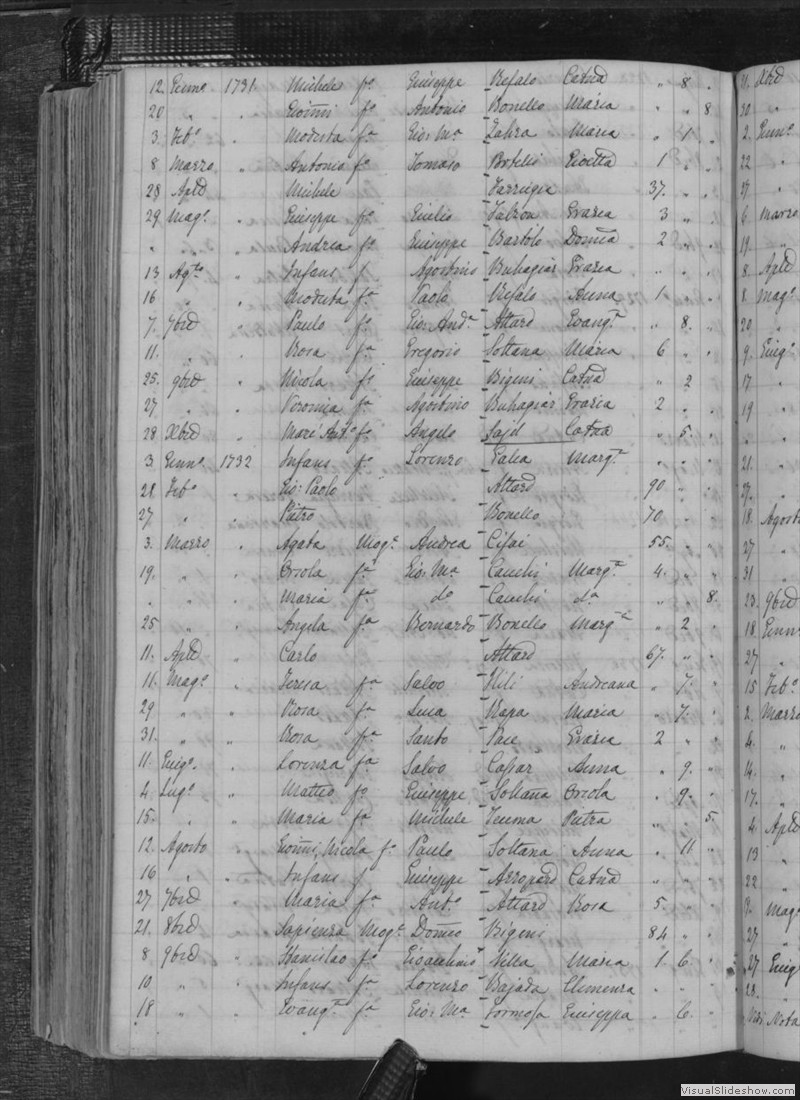 12. Genn.º 1731 Michele f.º Giuseppe Refalo Catna " 8 "
20 " " Gionni f.º Antonio Bonello Maria " " 8
3 Feb.º " Modesta f.ª Gio: M.ª Zabra Maria " 1 "
8 Marzo " Antonio f.º Tomaso Bottelli Gioetta 1 " "
28 Aple " Michele Farrugia 37. " "
29 Mag.º " Giuseppe f.º Giulio Falzon Grazia 3 " "
" " " Andrea f.º Giuseppe Bartolo Domca 2 " "
13 Ag.to " Infans f. Agostino Buhagiar Grazia " " "
16 " " Modesta f.ª Paolo Refalo Anna 1 " "
7. 7bre " Paulo f.º Gio: And.ª Attard Evang.ta " 8. "
11. " " Rosa f.ª Gregorio Soltana Maria 6 " "
25. 9bre " Nicola f.º Giuseppe Bigeni Catna " 2
27 " " Veronica f.ª Agostino Buhagiar Grazia 2 " "
28 Xbre " Mari' Ant.ª f.ª Angelo Sajd Catna " 5. "
3 Genn.º 1732 Infans f.º Lorenzo Galea Marg.ta " " "
21 Feb.º " Gio: Paolo Attard 90 " "
27 " " Pietro Bonello 70 " "
3. Marzo " Agata Mog.e Andrea Cifai 55. " "
19. " " Orsola f.ª Gio: M.ª Cauchi Marg.ta 4. " "
" " " Maria f.ª d.º Cauchi d.ª " " 8.
25 " " Angela f.ª Bernardo Bonello Marg.ta " 2 "
11. Aple " Carlo Attard 67. " "
11. Mag.º " Teresa f.ª Salvo Mili Andreana " 7. "
29 " " Rosa f.ª Luca Rapa Maria " 7. "
31. " " Rosa f.ª Santo Pace Grazia 2 " "
11. Giug.º " Lorenza f.ª Salvo Caffar Anna " 9. "
4. Lug.º " Matteo f.º Giuseppe Soltana Orsola " 9. "
15. " " Maria f.ª Michele Teuma Petra " " 5.
12. Agosto " Gionni, Nicola f.º Paulo Soltana Anna " 11 "
16 " " Infans f. Giuseppe Azzopard Catna " " "
27. 7bre " Maria f.ª Ant.º Attard Rosa 5. " "
21. 8bre " Sapienza Mog.e Domco Bigeni 84 " "
8. 9bre " Stanislao f.º Gioachino Vella Maria 1. 6. "
10. " " Infans f. Lorenzo Bajada Clemenza " " "
18 " " Evang.ta f.ª Gio: M.ª Formosa Giuseppa " 6. "
21. Xbre
20 "
2. Genn.º
22 "
27 "
6. Marzo
19. "
8. Aple
8. Mag.º
20 "
9. Giug.º
17 "
19 "
21. "
27. "
18. Agosto
27 "
31 "
23. 9bre
18. Genn
27 "
15 Feb.º
2. Marzo
4. "
14. "
17. "
4. Aple
13 "
22 "
9. Mag.º
27 "
27 Giug
28. "
Nota
VisualSlideshow.com